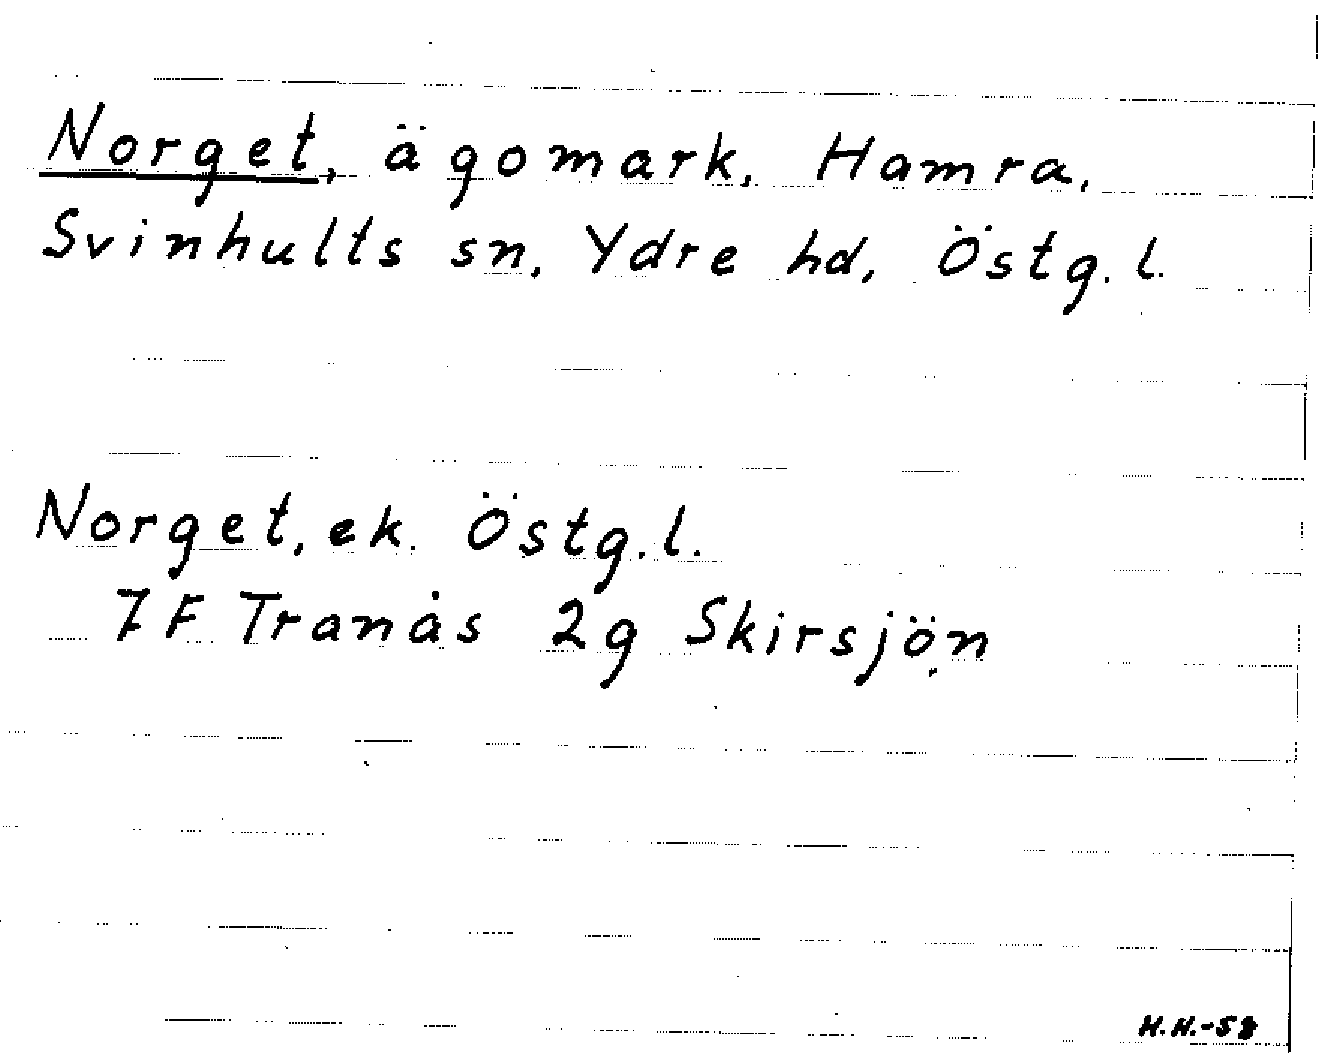 Norget, ägomark, Hamra,
Svinhults sn, Ydre hd, Östg. l.
Norget, ek. Östg. l.
7 F Tranås 2g Skirsjön
H.H.-58